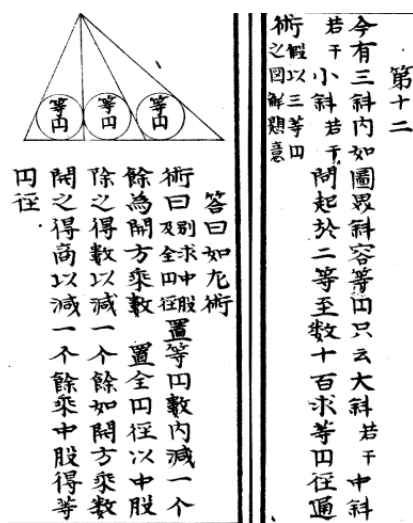 第十二
今有三斜内如圖界斜容等円只云大斜若干中斜
若干小斜若干問起於二等至数十百求等円径通
術假以三等円之図解題意
等円
等円
等円
答曰如左術
術曰別求中股及全円径置等円数内減一个
餘為開方乗数 置全円径以中股
除之得数以減一个餘如開方乗数
開之得商以減一个餘乗中股得等
円径